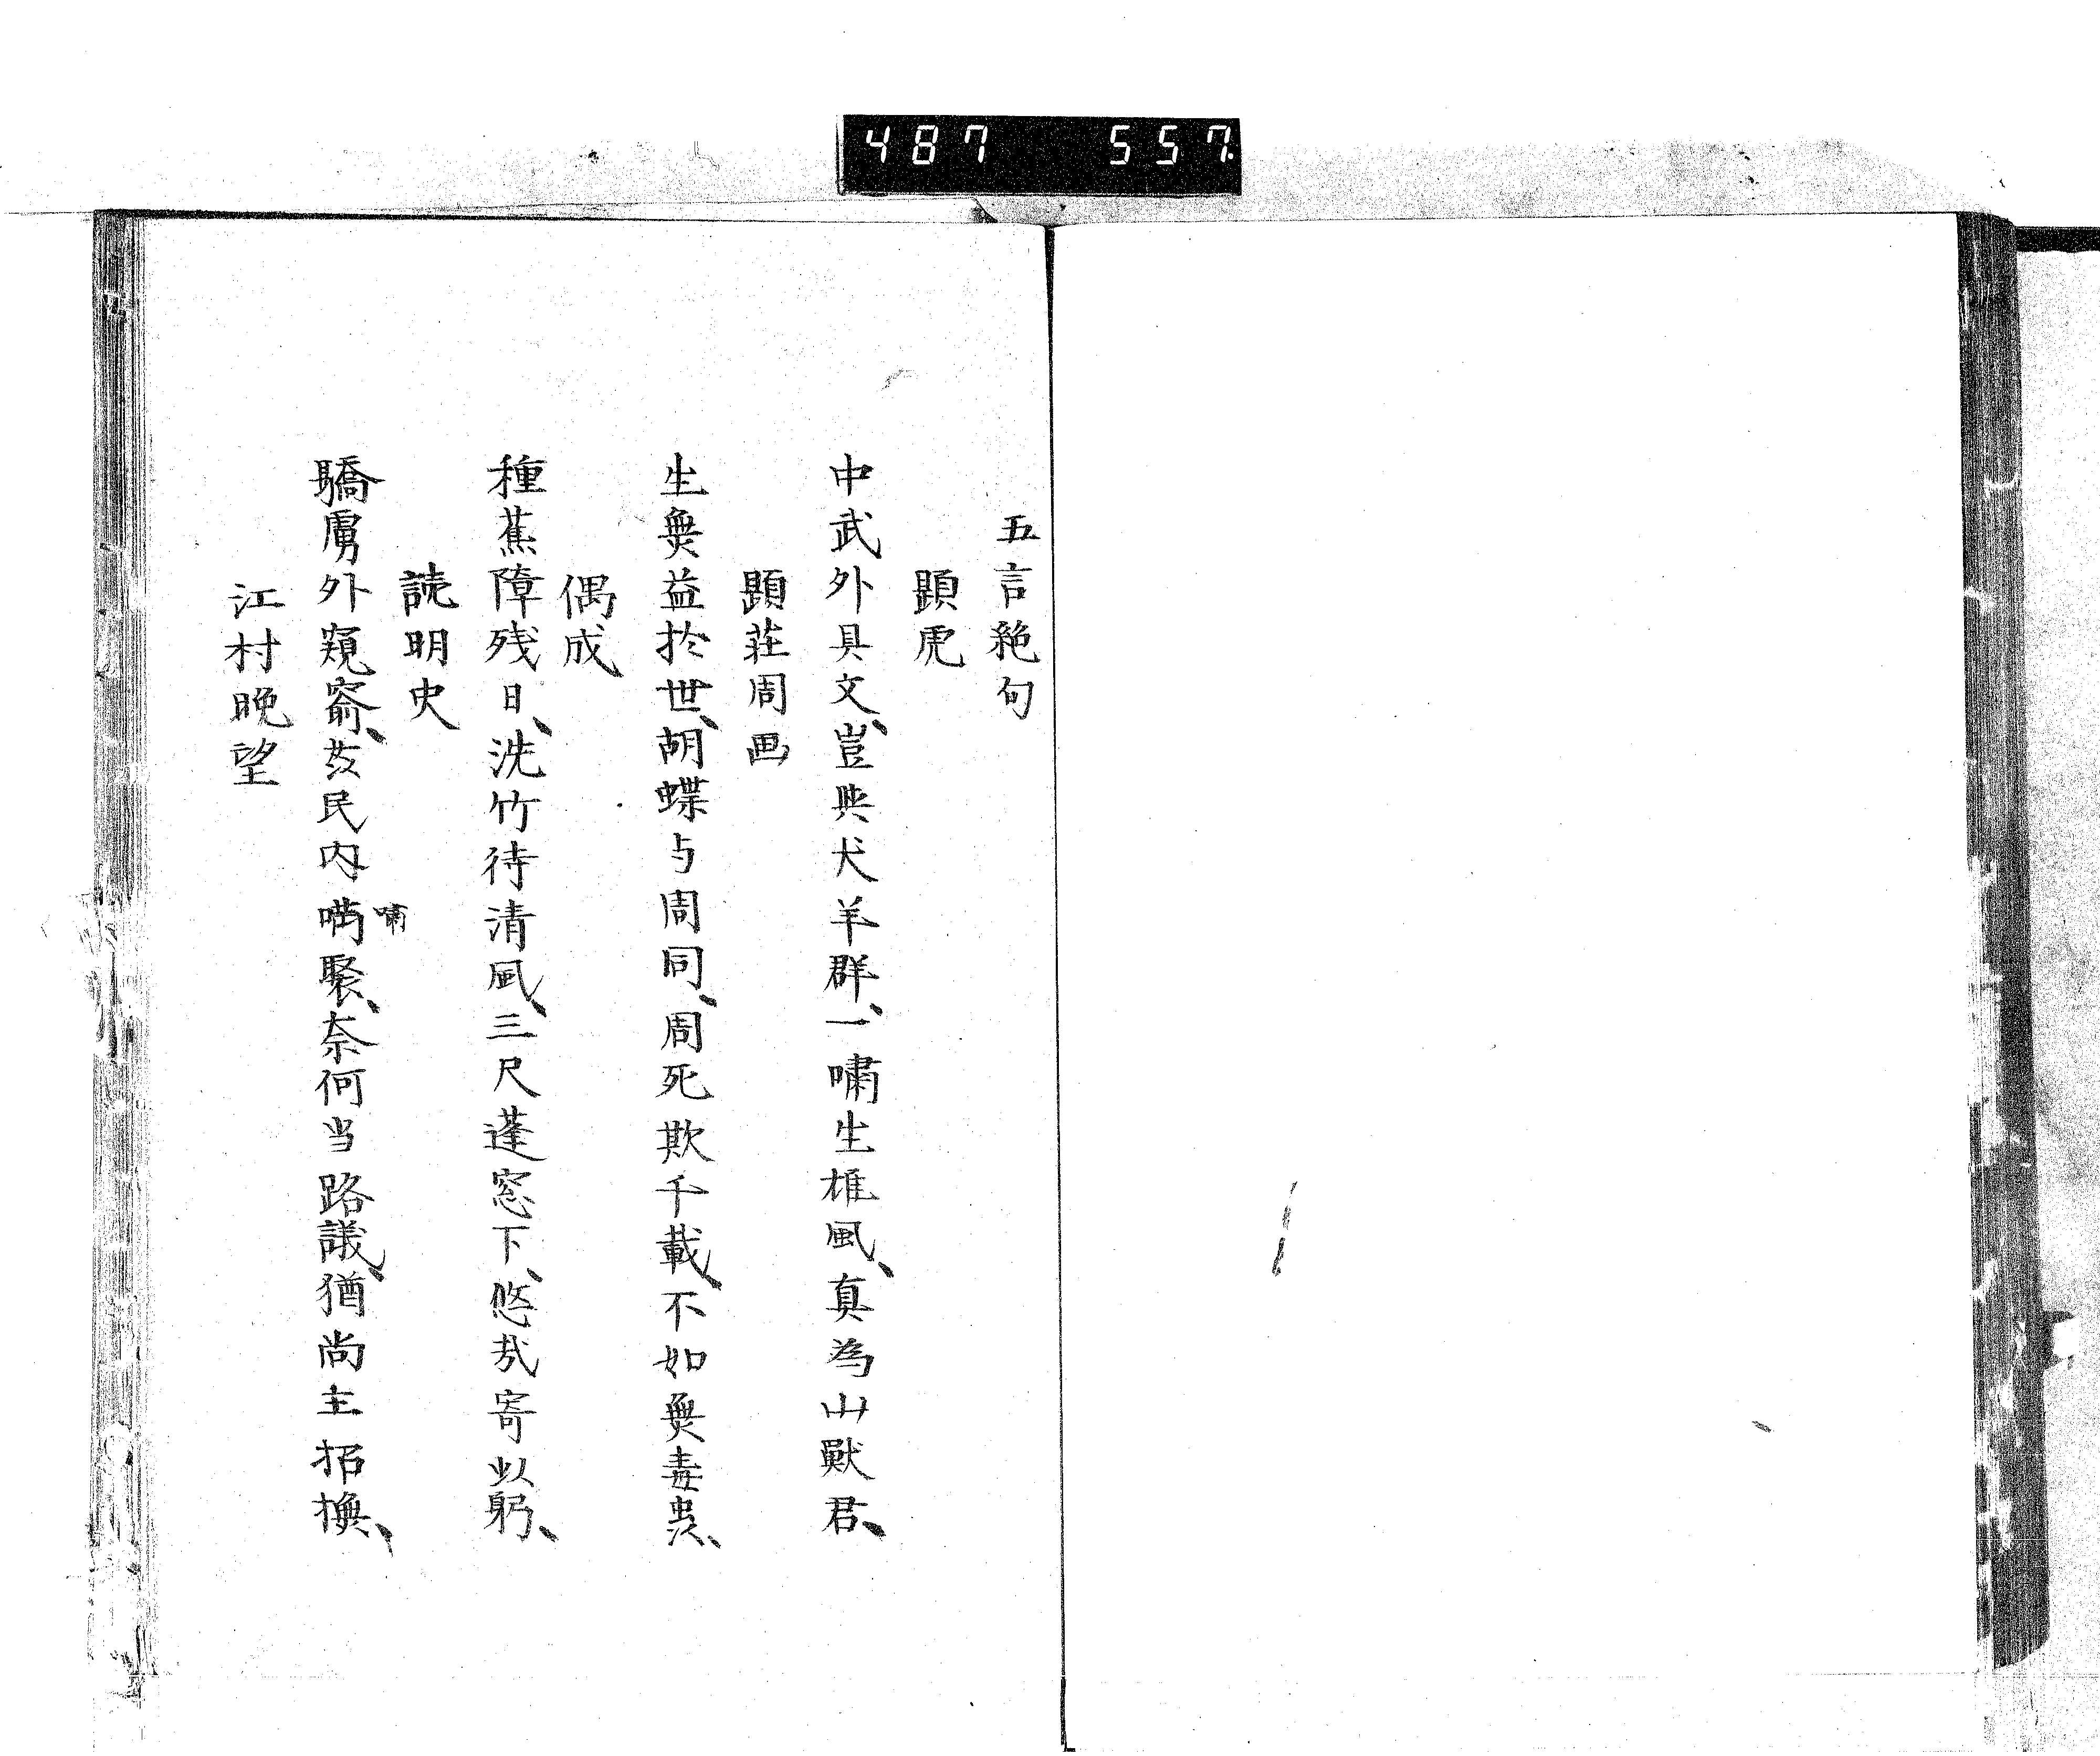 487 557
五言絶句
題虎
中武外具文、豈與犬羊群、一嘯生雄風、真為山獣君、
題荘周画
生無益於世、胡蝶与周同、周死欺千載、不如無毒虫、
偶成
種蕉障残日、洗竹待清風、三尺蓬窓下、悠哉寄此躬、
読明史
驕虜外窺窬、亥民内嘯聚、奈何当路議、猶尚主招撫、
嘯
江村晩望